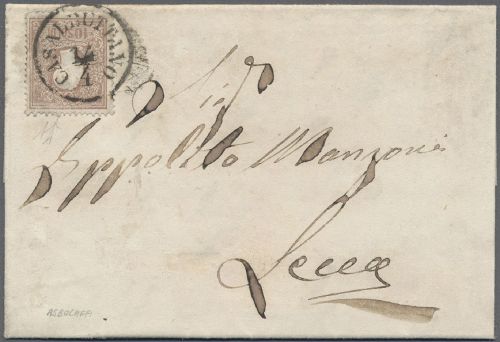 CASALBUTTANO
14
4
10 SOLDI
Sig
Ippolito Manzoni
Lecco